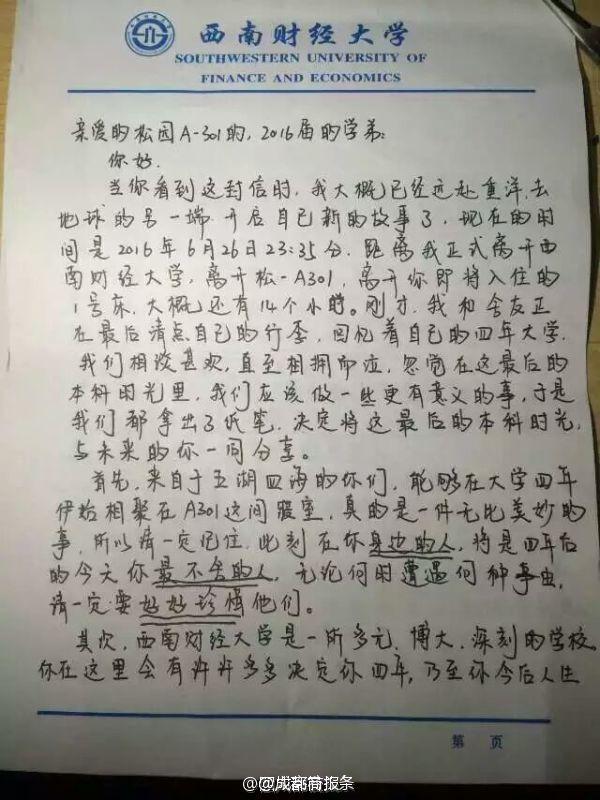 西南财经大学
SOUTHWESTERN UNIVERSITY OF
FINANCE AND ECONOMICS
亲爱的松园A-301的，2016届的学弟：
你好.
当你看到这封信时，我大概已经远赴重洋，去
地球的另一端开启自己新的故事了，现在的时
间是2016年6月26日23:35分，距离我正式离开西
南财经大学，离开松-A301，离开你即将入住的
1号床，大概还有14个小时。刚才，我和舍友正
在最后清点自己的行李，回忆着自己的四年大学，
我们相谈甚欢，直至相拥而泣，忽觉在这最后的
本科时光里，我们应该做一些更有意义的事，于是
我们都拿出了纸笔，决定将这最后的本科时光，
与未来的你一同分享。
首先，来自于五湖四海的你们，能够在大学四年
伊始相聚在A301这间寝室，真的是一件无比美妙的
事，所以请一定记住，此刻在你身边的人，将是四年后
的今天你最不舍的人，无论何时遭遇何种事由，
请一定要好好珍惜他们。
其次，西南财经大学是一所多元、博大、深刻的学校，
你在这里会有许许多多决定你四年，乃至你今后人生
第 页
@成都商报条